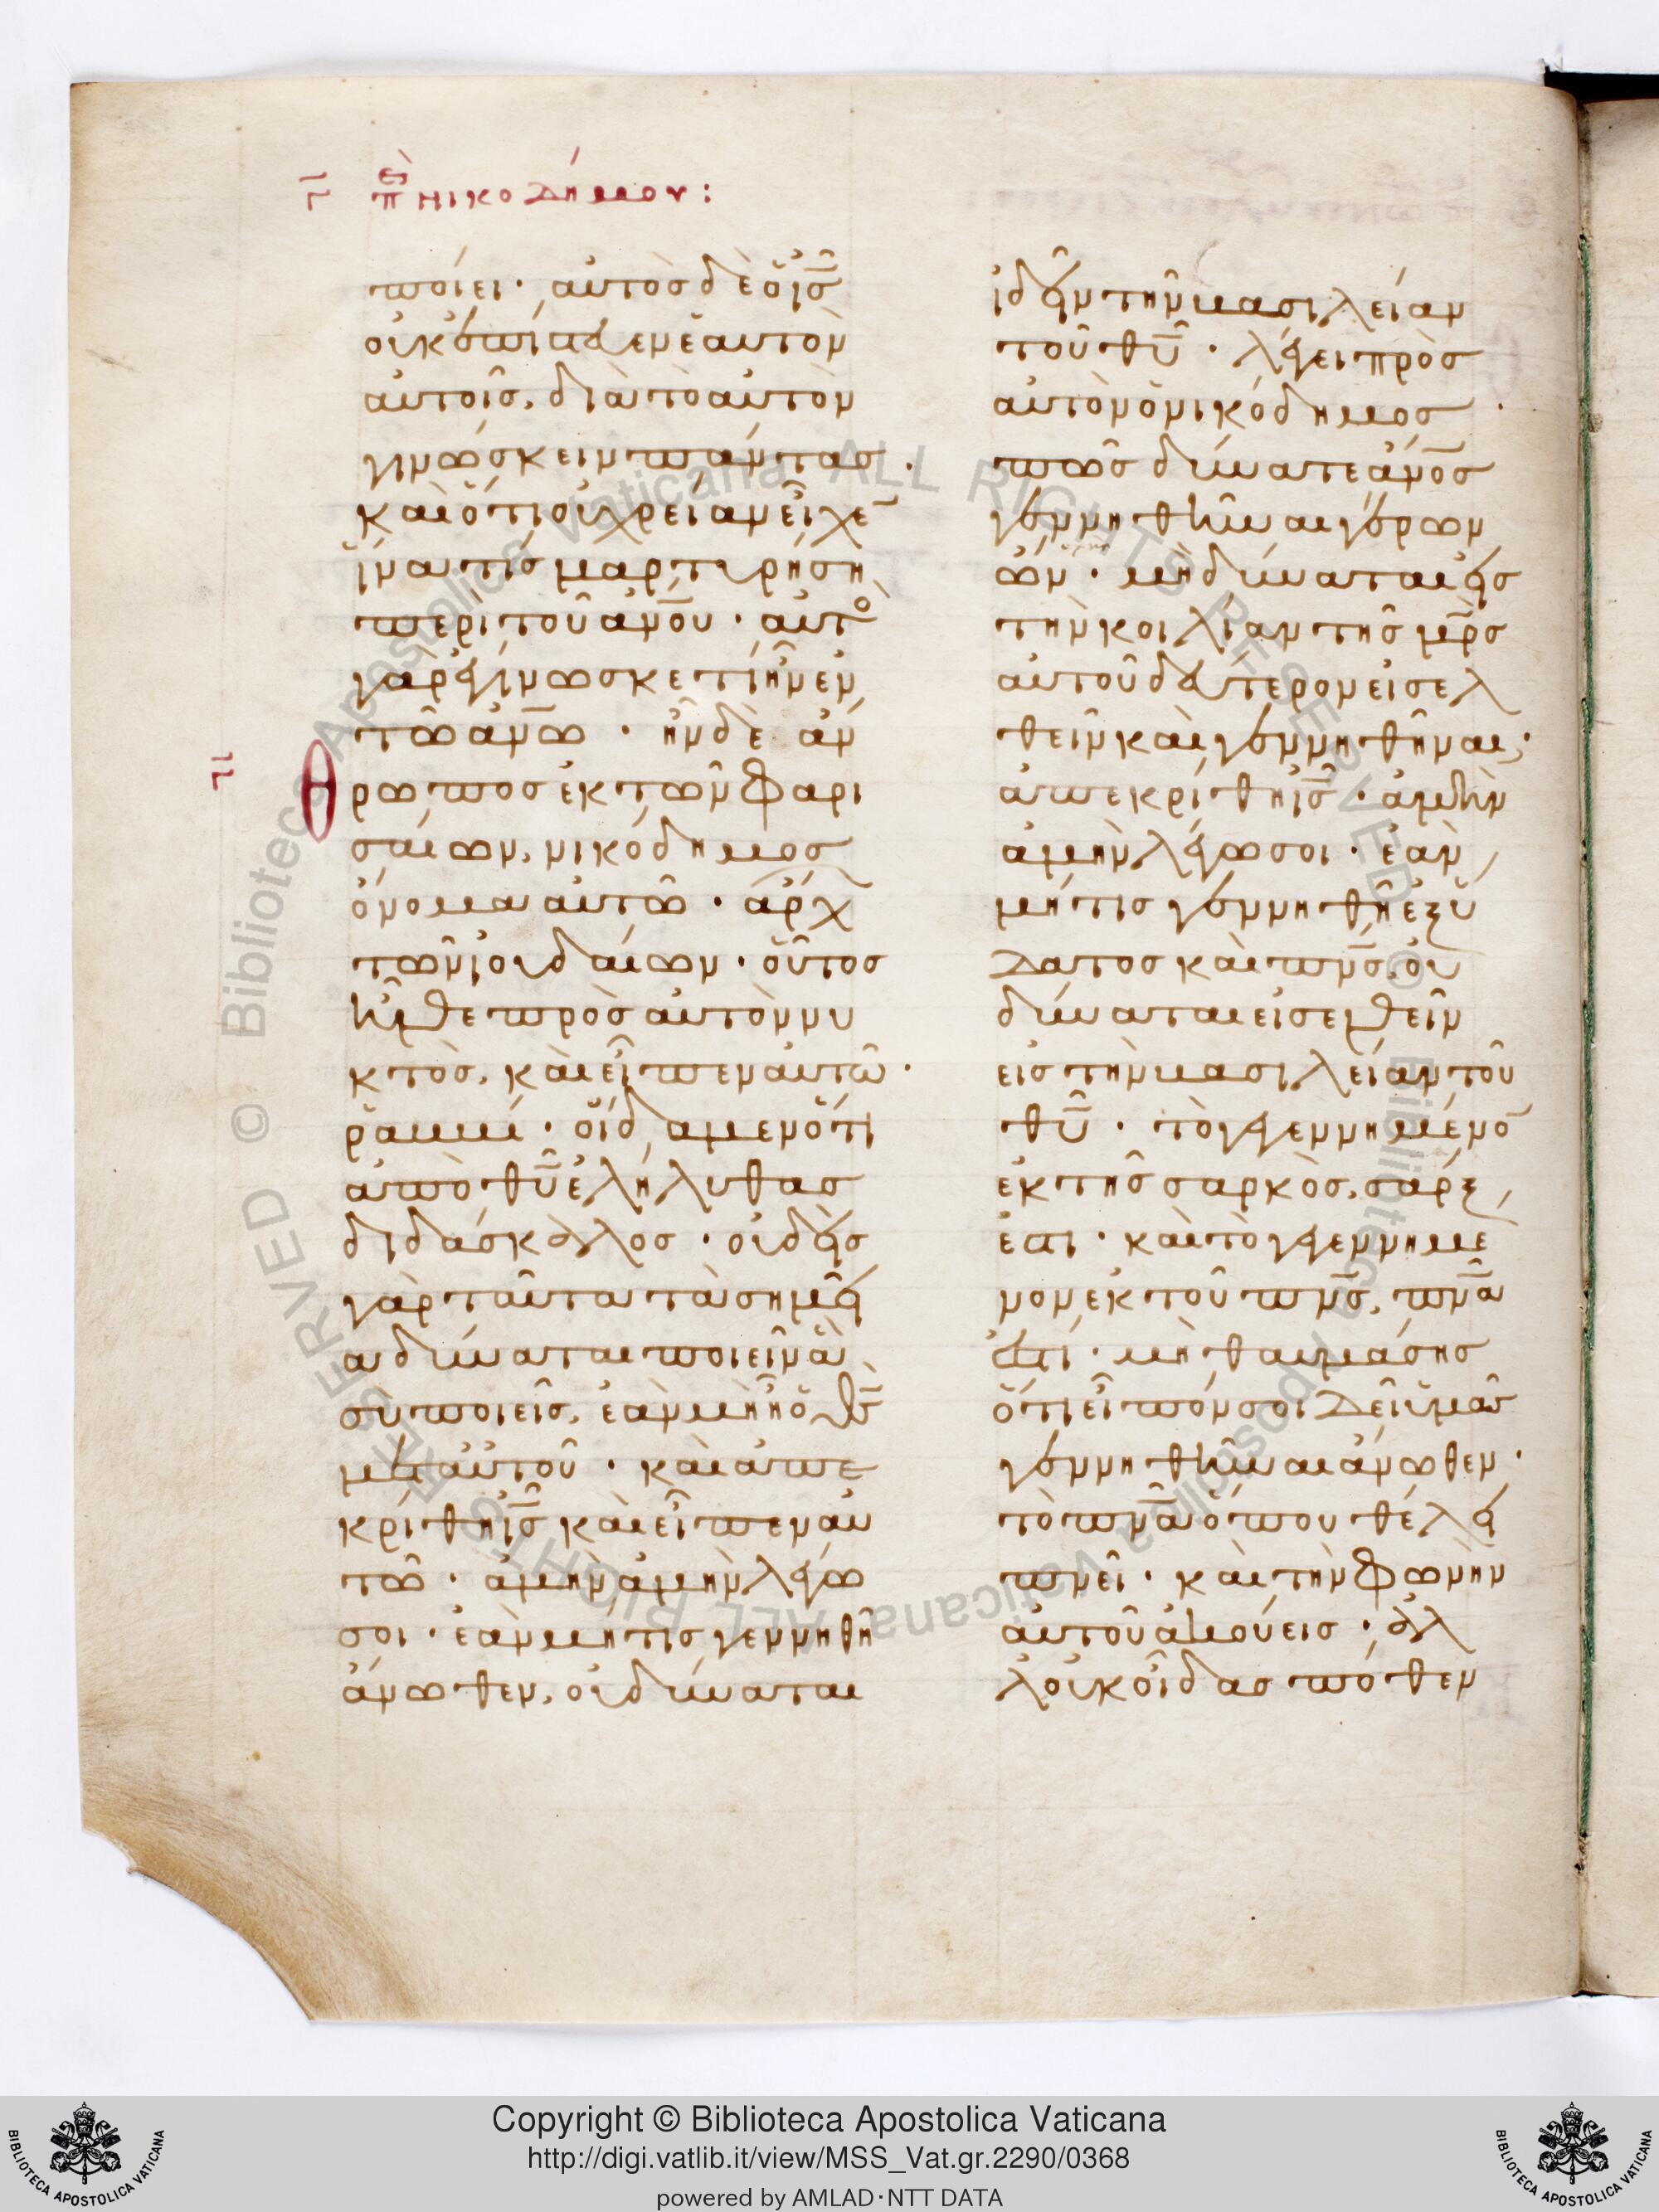 γ̅ πὲ νικοδήμου:
ποίει· αὐτὸς δὲ ὁ ι̅ς̅
οὐκ ἐπίστευεν ἑαυτὸν
αὐτοῖς, διὰ τὸ αὐτὸν
γινώσκειν πάντας·
καὶ ὅτι οὐ χρείαν εἶχε̅
ἵνα τὶς μαρτυρήση
περὶ τοῦ ἀν̅ου· αὐτο
γὰρ ἐγίνωσκε τί ἦν ἐν
τῶ ἀν̅ω· ἦν δὲ ἄν
γ̅
θρωπος ἐκ τῶν φαρι
σαίων, νικόδημος
ὄνομα αὐτῶ· ἄρχ
τῶν ἰουδαίων· οὗτος
ἦλθε πρὸς αὐτὸν νυ
κτὸς, καὶ εἶπεν αὐτῶ·
ῥαββί· οἴδαμεν ὅτι
ἀπὸ θ̅υ̅ ἐλήλυθας
διδάσκαλος· οὐδεὶς
γὰρ ταῦτα τὰ σημεῖ
α δύναται ποιεῖν ἃ
σὺ ποιεῖς, ἐὰν μὴ ἦ ὁ θ̅ς̅
μετ αὐτοῦ· καὶ ἀπε
κρίθη ι̅ς̅ καὶ εἶπεν αὐ
τῶ· ἀμὴν ἀμὴν λέγω
σοι· ἐὰν μή τις γεννηθῆ
ἄνωθεν, οὐ δύναται
ἰδεῖν τὴν βασιλείαν
τοῦ θ̅υ̅· λέγει πρὸς
αὐτὸν ὁ νικόδημος·
πῶς δύναται ἀν̅ος
γεννηθῆναι γέρων
ὤν· μὴ δύναται εἰς
τὴν κοιλίαν τῆς μρ̅ς
αὐτοῦ δεύτερον εἰσελ
θεῖν καὶ γεννηθῆναι;
ἀπεκρίθη ι̅ς̅· ἀμὴν
ἀμὴν λέγω σοι· ἐὰν
μή τις γεννηθῆ ἐξ ὕ
δατος καὶ πν̅ς, οὐ
δύναται εἰσελθεῖν
εἰς τὴν βασιλείαν τοῦ
θ̅υ̅· τὸ γεγεννημένο̅
ἐκ τῆς σαρκὸς, σάρξ
ἐστι· καὶ τὸ γεγεννημέ
νον ἐκ τοῦ πν̅ς, πν̅α
ἐστί· μὴ θαυμάσης
ὅτι εἶπόν σοι δεῖ ὑμᾶς
γεννηθῆναι ἄνωθεν·
τὸ πν̅α ὅπου θέλει
πνεῖ· καὶ τὴν φωνὴν
αὐτοῦ ἀκούεις· ἀλ
λ οὐκ οἶδας πόθεν
Copyright © Biblioteca Apostolica Vaticana
http://digi.vatlib.it/view/MSS_Vat.gr.2290/0368
powered by AMLAD·NTT DATA